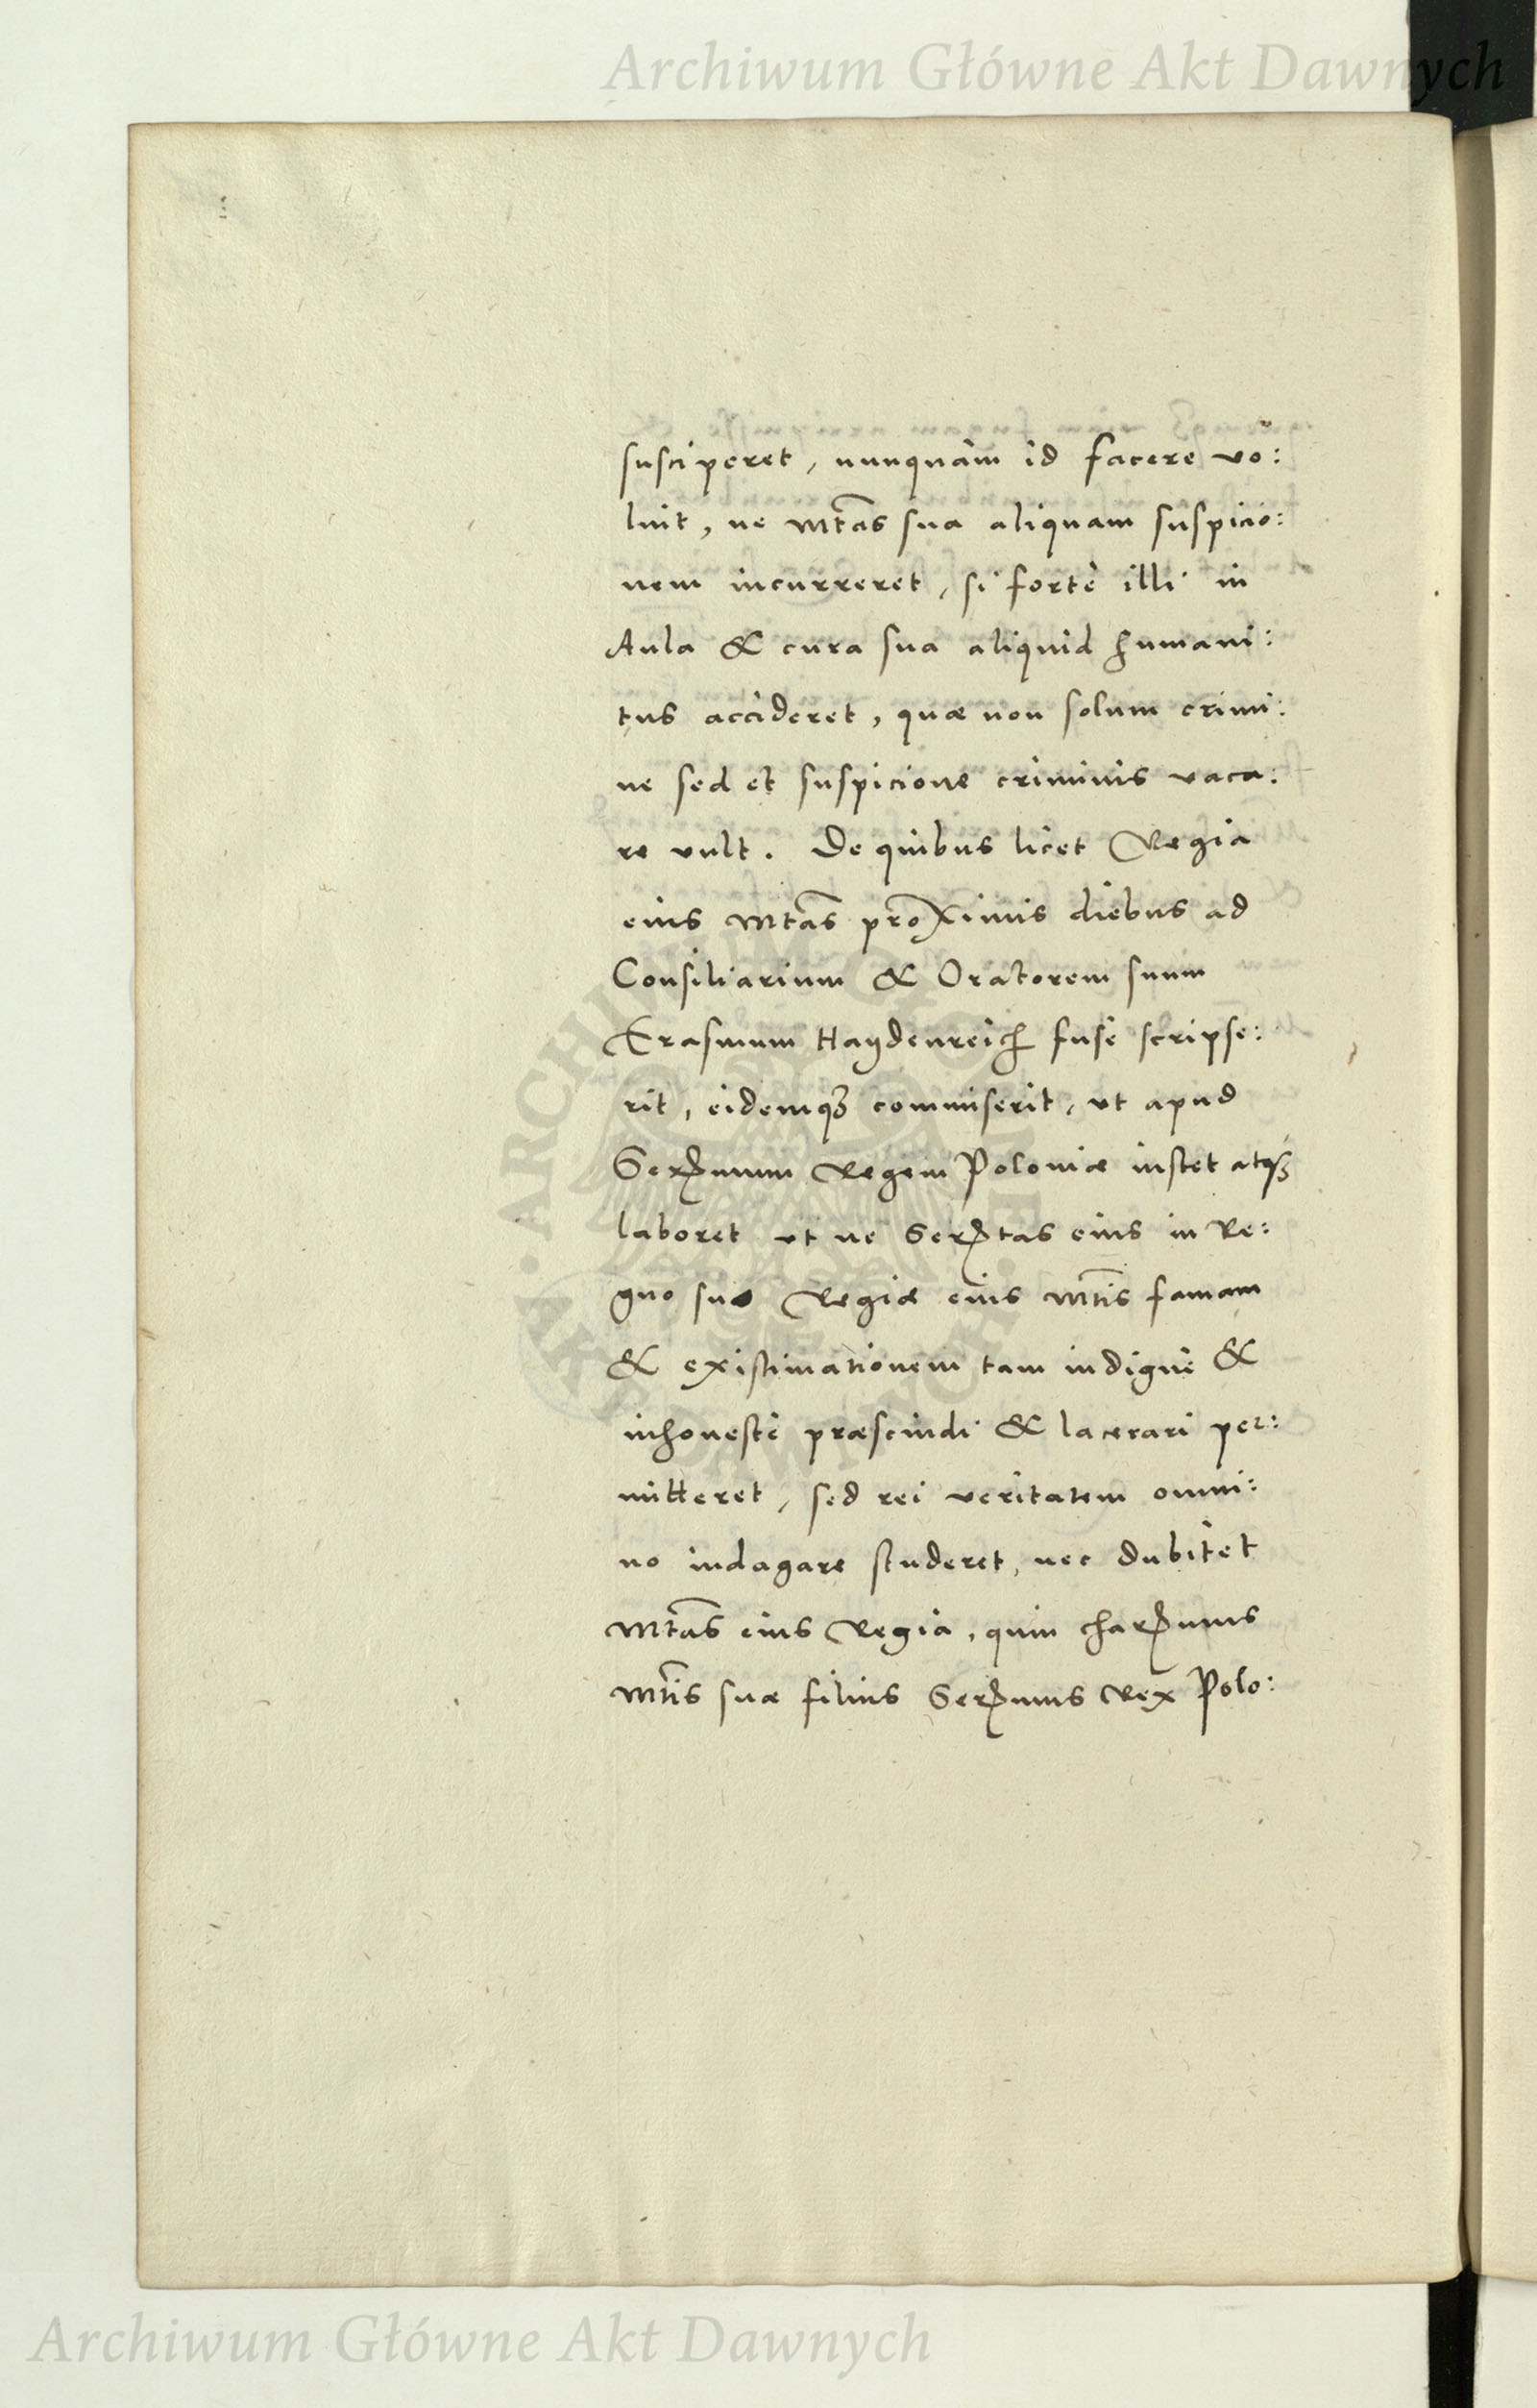 Archiwum Główne Akt Dawnych
susciperet, nunquàm id facere vo:
luit, ne Mtas sua aliquam suspicio:
nem incurreret, si fortè illi in
Aula & cura sua aliquid humani:
tus accideret, quæ non solum crimi:
ne sed et suspicione criminis vaca:
re vult. De quibus licet Regia
eius Mtas proximis diebus ad
Consiliarium & Oratorem suum
Erasmum Haydenreich fusè scripse:
rit, eidemq3 commiserit, vt apud
Serenmum Regem Poloniæ instet atq3
laboret vt ne Serentas eius in Re:
gno suo Regiæ eius Mtis famam
& existimationem tam indignè &
inhonestè præscindi & lacerari per:
mitteret, sed rei veritatem omni:
no indagare studeret, nec dubitet
Mtas eius Regia, quin charmus
Mtis suæ filius Serenmus Rex Polo:
Archiwum Główne Akt Dawnych